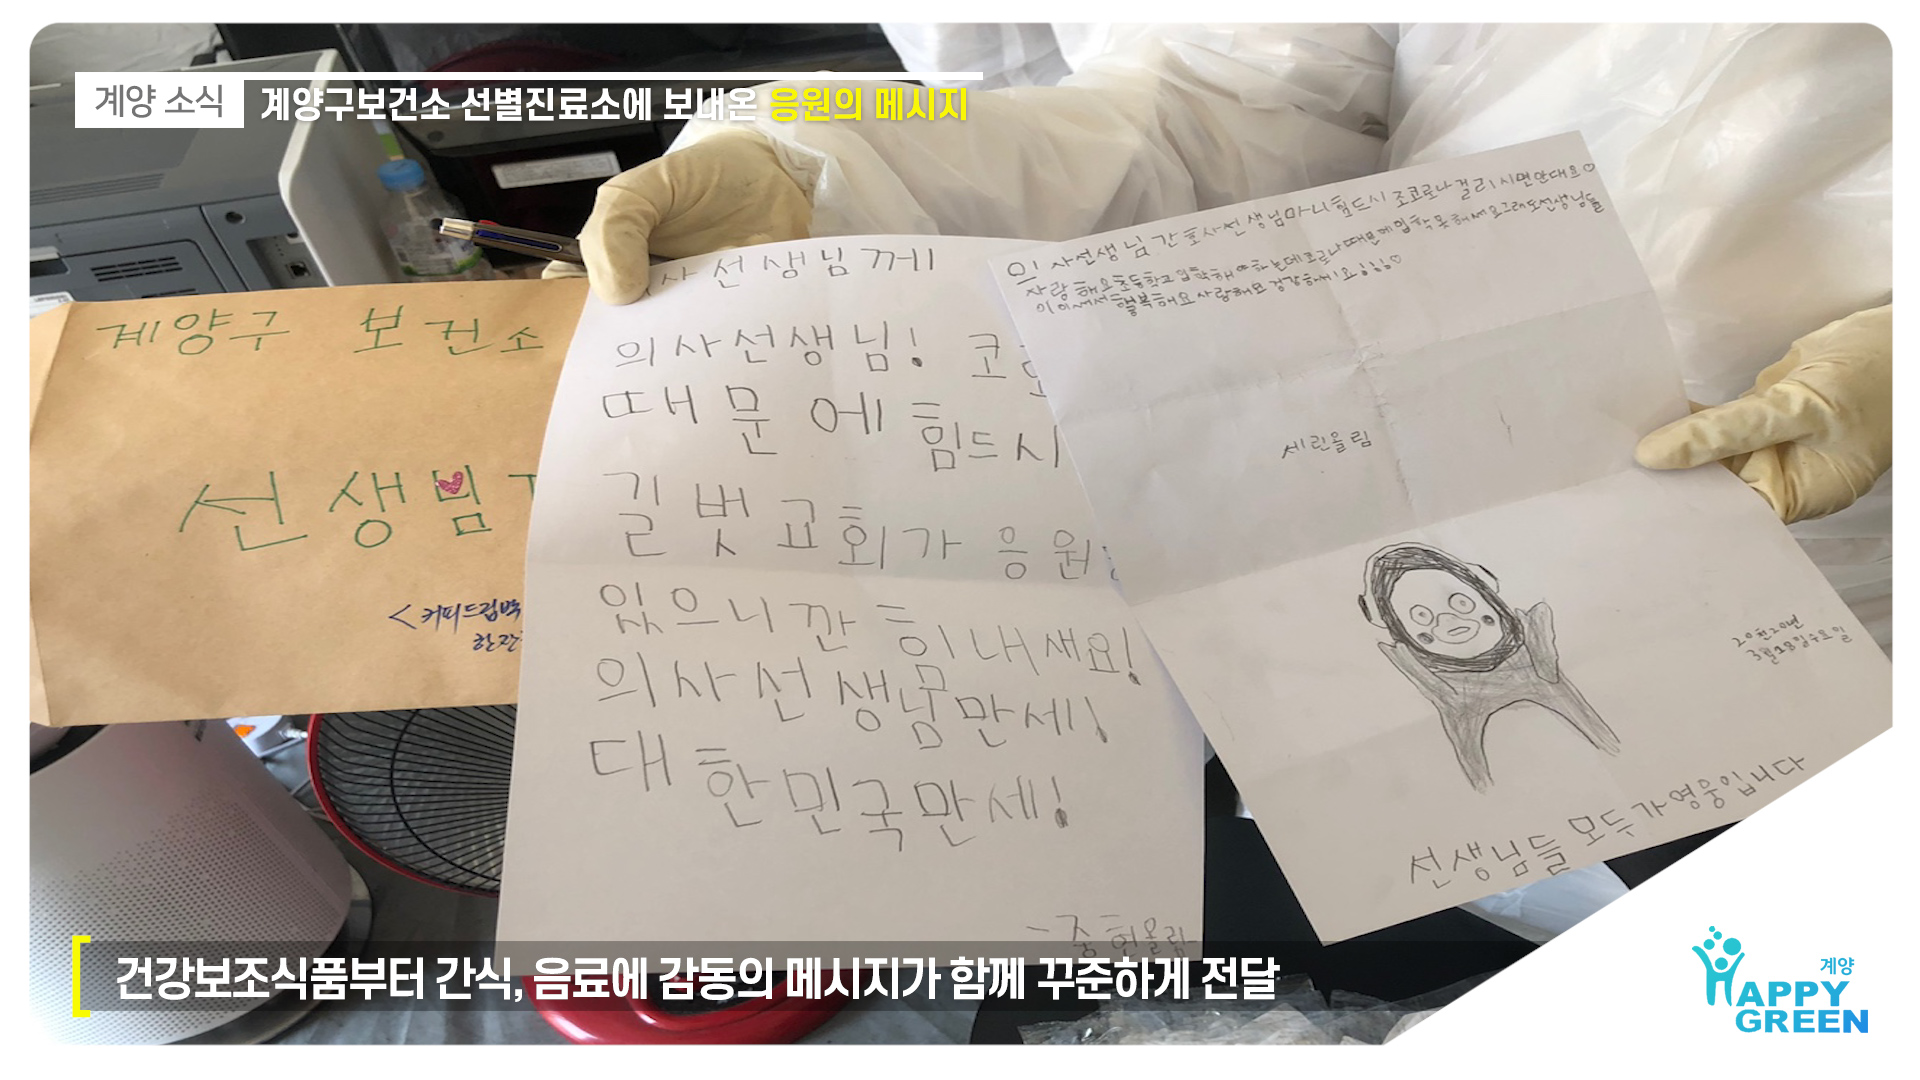 계양 소식
계양구보건소 선별진료소에 보내온 응원의 메시지
계양구 보건소
선생님
<커피드립백
한잔
사선생님께
의사선생님! 코
때문에 힘드시
길벗교회가 응원
있으니깐 힘내세요!
의사선생님만세!
대한민국만세!
-중헌올림
의사선생님 간호사선생님마니힘드시 조코로나걸리시면안대요♡
사랑해요초등학교입학해야하는데코로나때문에입학못해써요그래도선생님들
이이써서행복해요사랑해요건강하세요♡
세린올림
20천20년
3월18일수요일
선생님들 모두가영웅입니다
건강보조식품부터 간식, 음료에 감동의 메시지가 함께 꾸준하게 전달
계양
HAPPY
GREEN